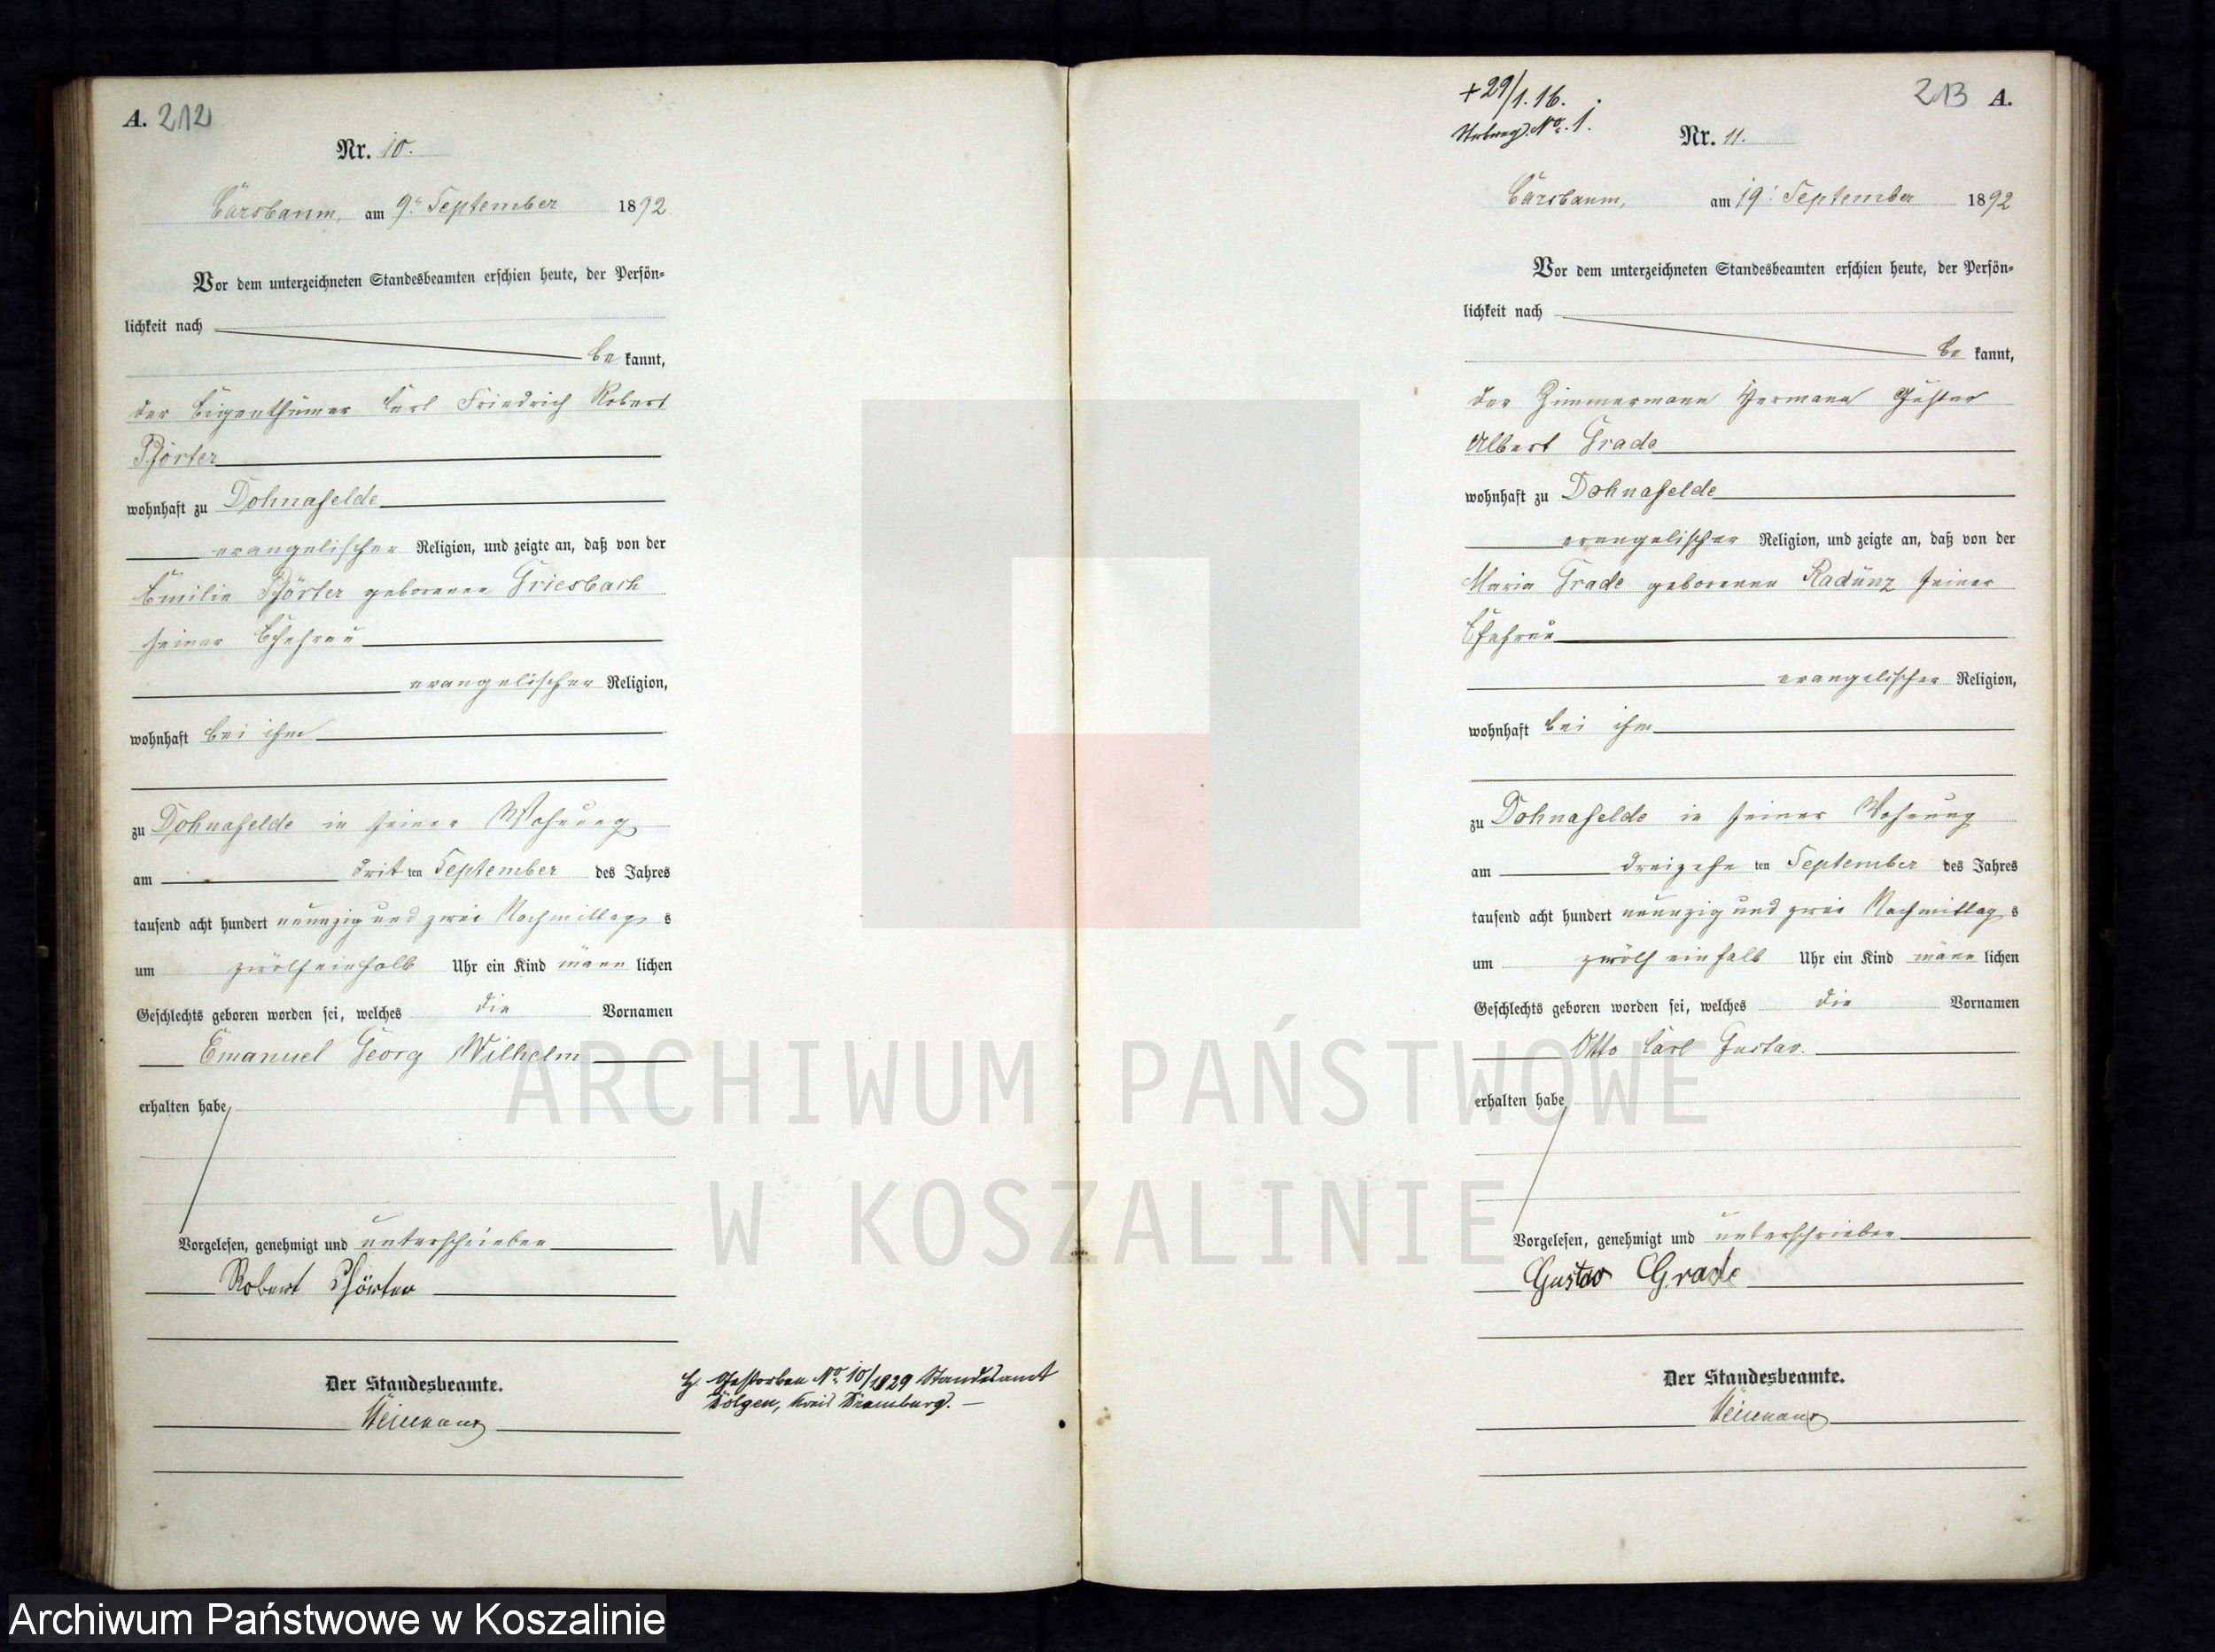 A. 212
Nr. 10.
Carsbaum, am 9. September 1892.
Vor dem unterzeichneten Standesbeamten erschien heute, der Persön-
lichkeit nach
be kannt,
der Eigenthümer Carl Friedrich Robert
Pförter
wohnhaft zu Dohnafelde
evangelischer Religion, und zeigte an, daß von der
Emilie Pförter geborenen Griesbach
seiner Ehefrau
evangelischer Religion,
wohnhaft bei ihm
zu Dohnafelde in seiner Wohnung
am drit ten September des Jahres
tausend acht hundert neunzig und zwei Nachmittag s
um zwölf einhalb Uhr ein Kind männ lichen
Geschlechts geboren worden sei, welches die Vornamen
Emanuel Georg Wilhelm
erhalten habe,
Vorgelesen, genehmigt und unterschrieben
Robert Pförter
Der Standesbeamte.
Gestorben No. 10/1929 Standesamt
Dölgen, Kreis Dramburg. —
+ 29/1. 16.
No. 1.
213 A.
Nr. 11.
Carsbaum, am 19. September 1892
Vor dem unterzeichneten Standesbeamten erschien heute, der Persön-
lichkeit nach
be kannt,
der Zimmermann Hermann Gustav
Albert Grade
wohnhaft zu Dohnafelde
evangelischer Religion, und zeigte an, daß von der
Maria Grade geborenen Radünz seiner
Ehefrau
evangelischer Religion,
wohnhaft bei ihm
zu Dohnafelde in seiner Wohnung
am dreizehn ten September des Jahres
tausend acht hundert neunzig und zwei Nachmittag s
um zwölf einhalb Uhr ein Kind männ lichen
Geschlechts geboren worden sei, welches die Vornamen
Otto Carl Gustav.
erhalten habe
Vorgelesen, genehmigt und unterschrieben
Gustav Grade
Der Standesbeamte.
ARCHIWUM PAŃSTWOWE
W KOSZALINIE
Archiwum Państwowe w Koszalinie